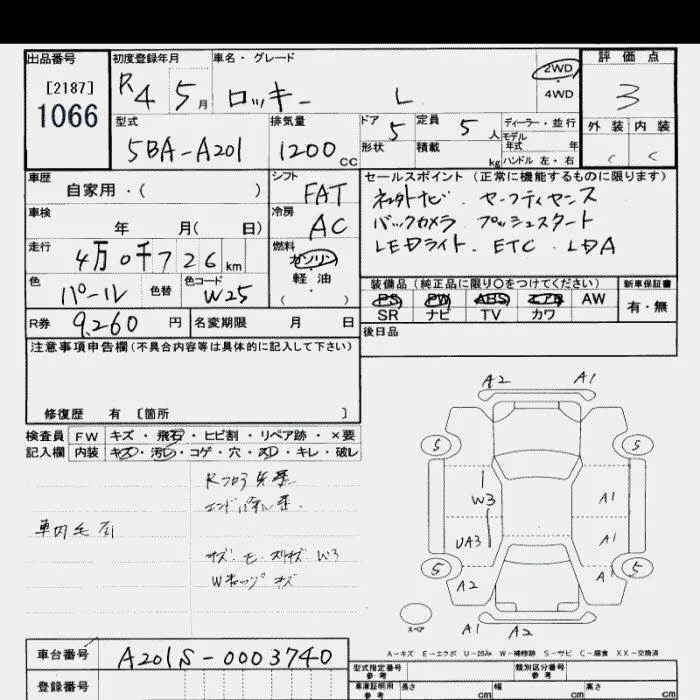 出品番号
[2187]
1066
初度登録年月
R4 5月
車名・グレード
ロッキー L
2WD
・
4WD
評価点
3
外装 内装
C C
型式
5BA-A201
排気量
1200 CC
ドア
5
定員
5 人
形状
積載
kg
ディーラー・並行
モデル
年式 年
ハンドル 左・右
車歴
自家用・( )
シフト
FAT
セールスポイント (正常に機能するものに限ります)
ネットナビ セーフティセンス
バックカメラ プッシュスタート
LEDライト. ETC. LDA
車検
年 月( 日)
冷房
AC
走行
4万0千726km
燃料
ガソリン
軽油
・( )
色
パール
色替
色コード
W25
R券 9,260 円
名変期限 月 日
装備品 (純正品に限り○をつけてください)
PS PW ABS エアB AW
SR ナビ TV カワ
新車保証書
有・無
後日品
注意事項申告欄(不具合内容等は具体的に記入して下さい)
修復歴 有 〔箇所 〕
検査員
記入欄
FW キズ・飛石・ヒビ割・リペア跡・×要
内装 キズ・汚レ・コゲ・穴・スレ・キレ・破レ
A2 A1
5 5
W3 A1
UA3 A1
5 A1 5
A2
スペア
A1 A2
A-キズ E-エクボ U-凹み W-補修跡 S-サビ C-腐食 XX-交換済
車台番号 A201S-0003740
登録番号
型式指定番号
参考
類別区分番号
参考
車庫証明用
参考
長さ cm
幅 cm
高さ cm